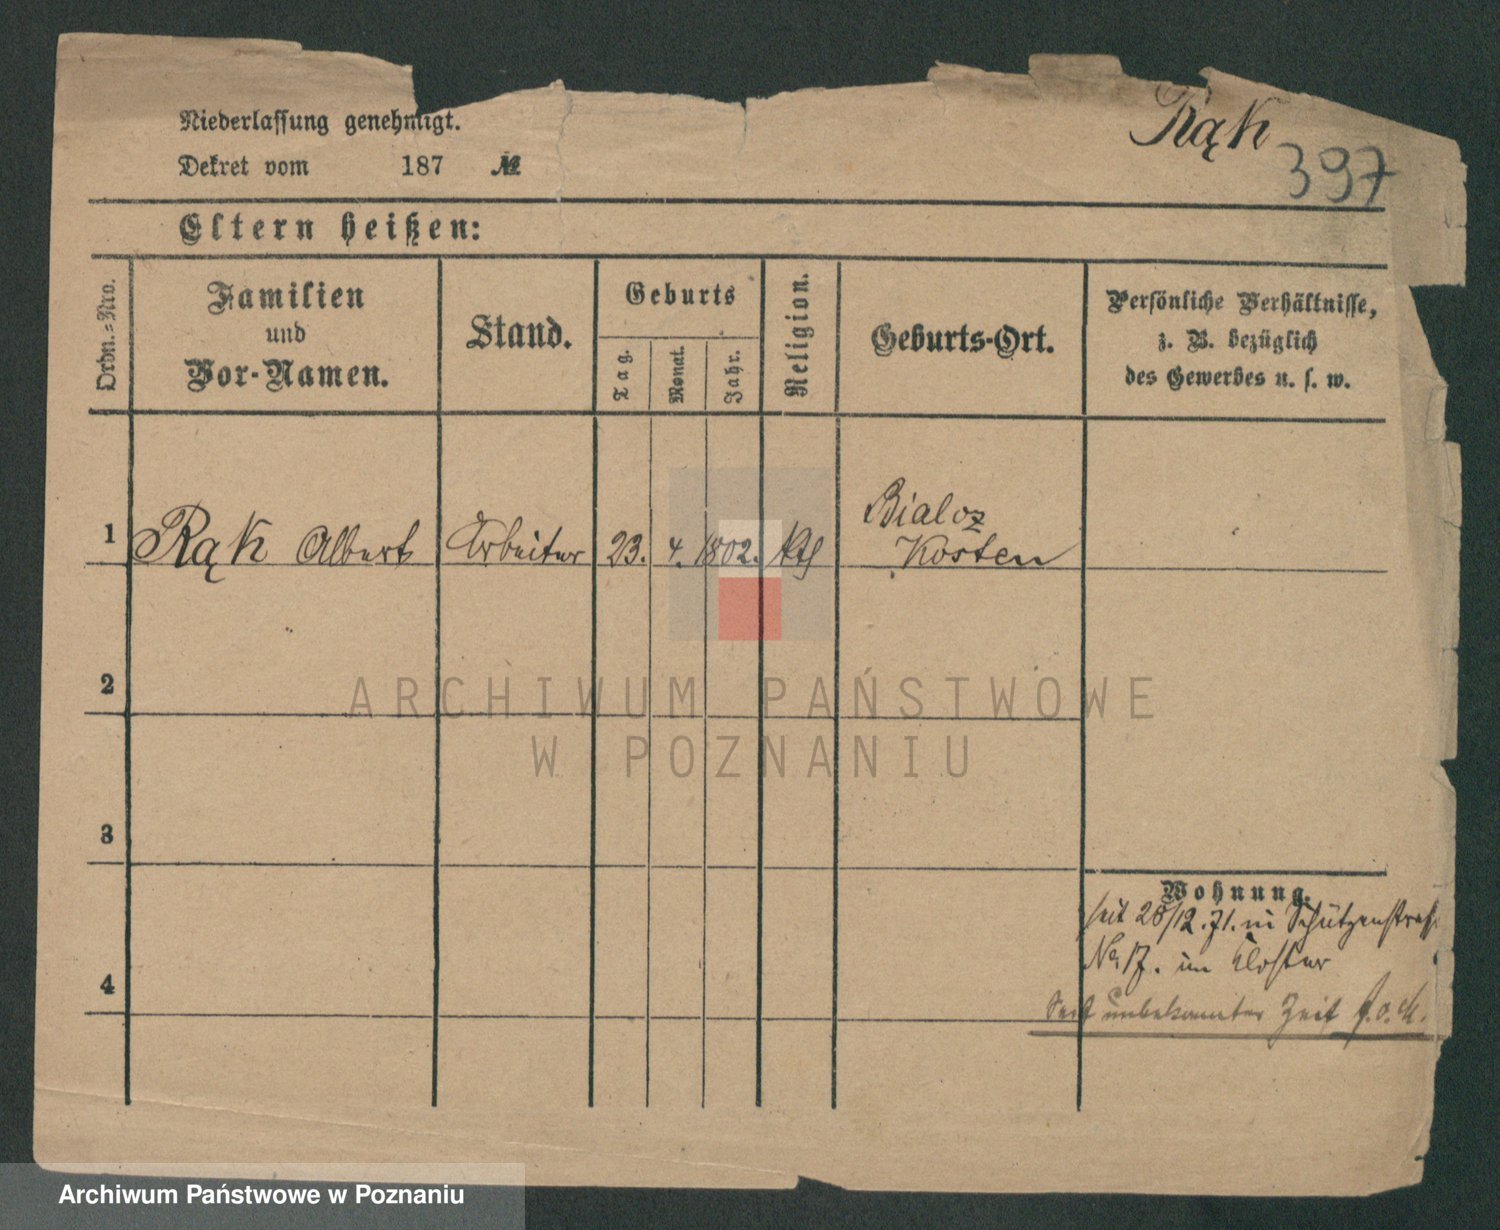 Rąk
397
Niederlassung genehmigt.
Dekret vom 187 №
Eltern heißen:
Ordn.-Nro.
Familien
und
Vor-Namen.
Stand.
Geburts
Tag.
Monat.
Jahr.
Religion.
Geburts-Ort.
Persönliche Verhältnisse,
z. B. bezüglich
des Gewerbes u. s. w.
1 Rąk Albert Arbeiter 23. 4. 1802. kth
Bialoz
Kosten
2
3
4
Wohnung.
seit 28/12.71. in Schützenstraße
No. 17. im Kloster
Seit unbekannter Zeit
ARCHIWUM PAŃSTWOWE
W POZNANIU
Archiwum Państwowe w Poznaniu